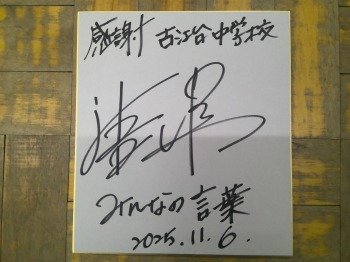 感謝! 古江台中学校
みんなの言葉
2025.11.6.